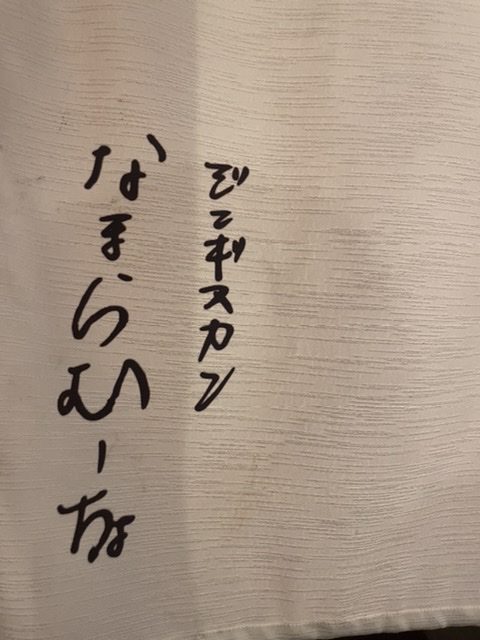 ジンギスカン
なまらむーちょ